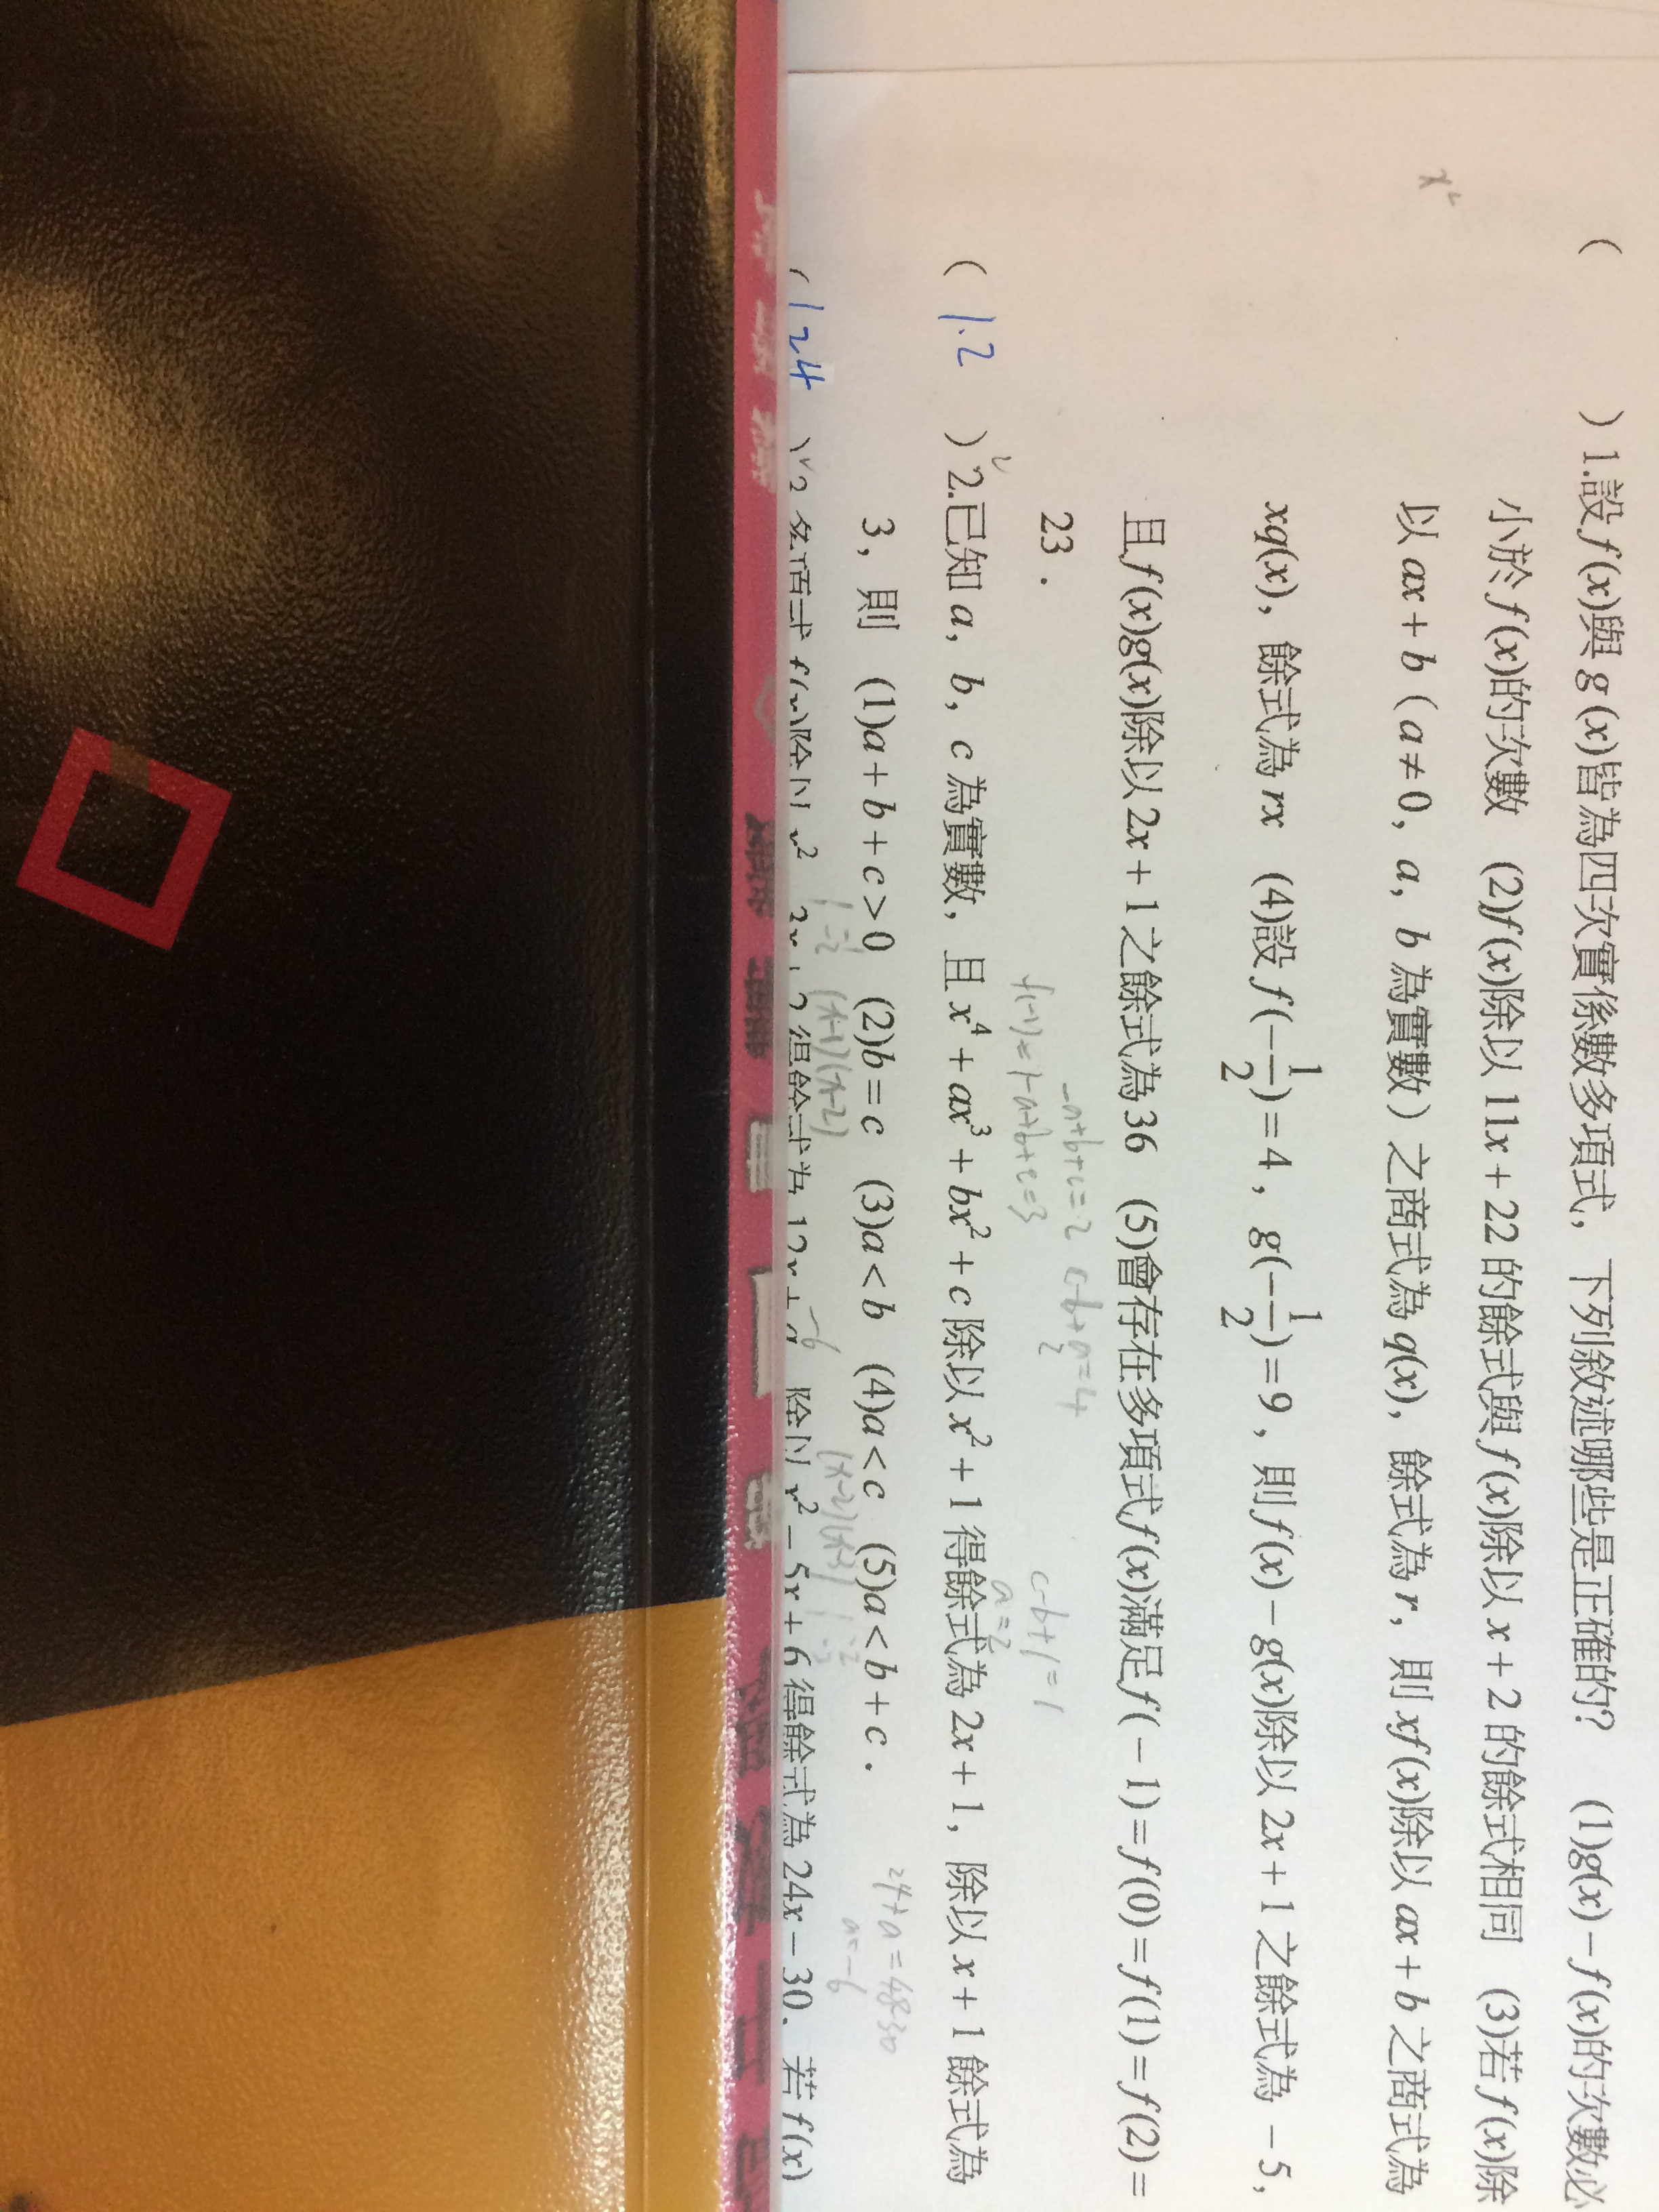 ( ) 1.設 f(x)與 g (x)皆為四次實係數多項式，下列敘述哪些是正確的? (1)g(x)－f(x)的次數必
小於 f(x)的次數 (2)f(x)除以 11x＋22 的餘式與 f(x)除以 x＋2 的餘式相同 (3)若 f(x)除
x²
以 ax＋b（a≠0，a，b 為實數）之商式為 q(x)，餘式為 r，則 xf(x)除以 ax＋b 之商式為
xq(x)，餘式為 rx (4)設 f(－1/2)＝4，g(－1/2)＝9，則 f(x)－g(x)除以 2x＋1 之餘式為－5，
且 f(x)g(x)除以 2x＋1 之餘式為 36 (5)會存在多項式 f(x)滿足 f(－1)＝f(0)＝f(1)＝f(2)＝
23．
-a+b+c=2 c-b+a=4
2
f(-1)=1-a+b+c=3
c-b+1=1
a=2
( 1.2 ) 2.已知 a，b，c 為實數，且 x⁴＋ax³＋bx²＋c 除以 x²＋1 得餘式為 2x＋1，除以 x＋1 餘式為
3，則 (1)a＋b＋c＞0 (2)b＝c (3)a＜b (4)a＜c (5)a＜b＋c．
24+a=48-30
a=-6
(x-1)(x-2)
-6
(x-2)(x-3)
( 124 ) 多項式 f(x)除以 得餘式為 12x＋a 除以 x²－5x＋6 得餘式為 24x－30，若 f(x)